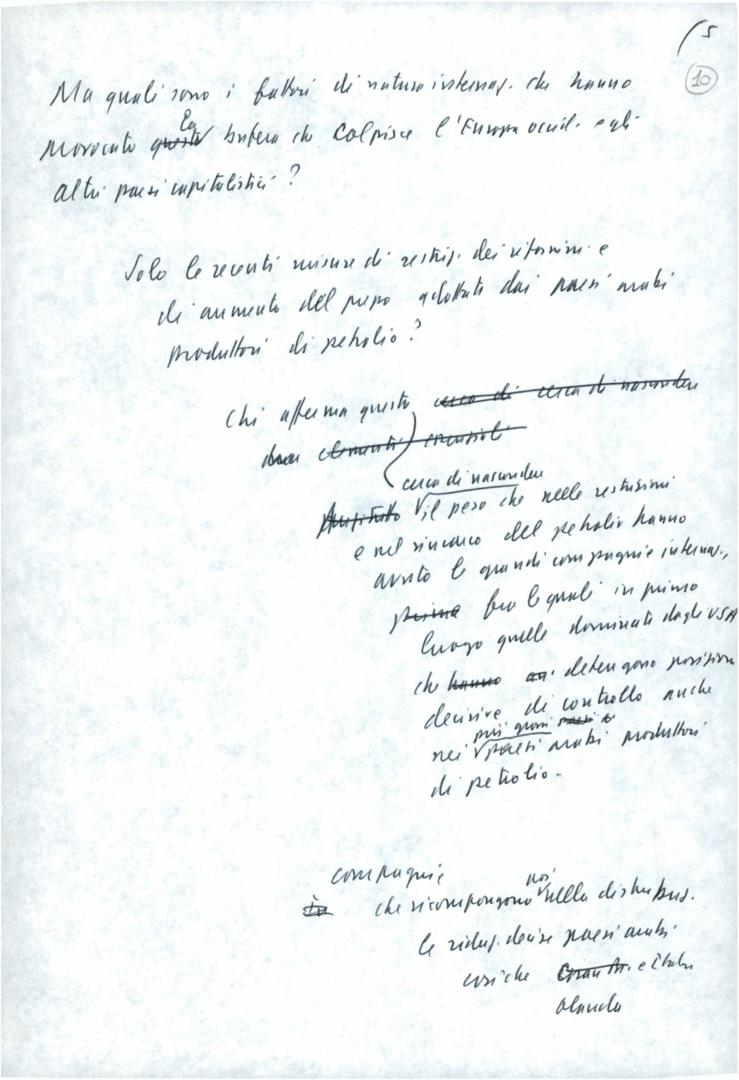 /5
10
Ma quali sono i fattori di natura internaz. che hanno
la
provocato questa bufera che colpisce l'Europa occid. e gli
altri paesi capitalistici?
Solo le recenti misure di restriz. dei rifornim. e
di aumento del prezzo adottati dai paesi arabi
produttori di petrolio?
Chi afferma questo cerca di cerca di nascondere
due elementi essenziali
cerca di nascondere
Anzitutto il peso che nelle restrizioni
e nel rincaro del petrolio hanno
avuto le grandi compagnie internaz.,
prima fra le quali in primo
luogo quelle dominate dagli USA
che hanno detengono posizioni
decisive di controllo anche
più grossi
nei paesi arabi produttori
di petrolio.
compagnie
poi
che ricompongono nella distribuz.
le riduz. decise paesi arabi
così che e Italia
Olanda